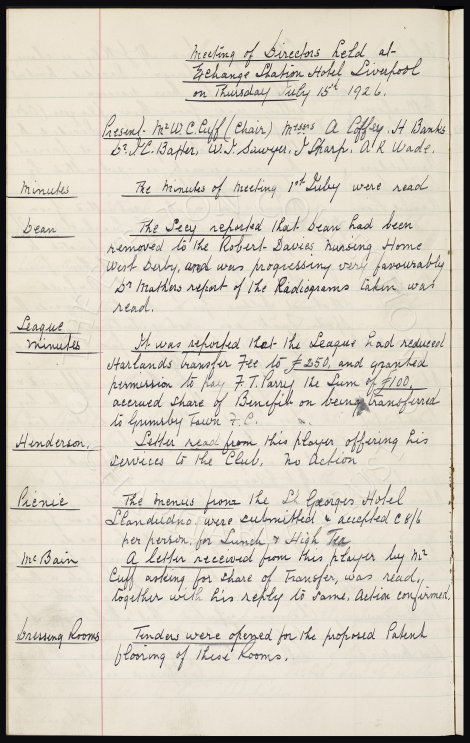 Meeting of Directors held at
Exchange Station Hotel Liverpool
on Thursday July 15th 1926.
Present - Mr W.C. Cuff (Chair) Messrs A Coffey. H Banks
Dr. J.C. Baxter, W.J. Sawyer, J Sharp, A.R. Wade.
Minutes
The Minutes of Meeting 1st July were read
Dean
The Secy reported that Dean had been
removed to the Robert Davies Nursing Home
West Derby, and was progressing very favourably
Dr Mathers report of the Radiograms taken was
read.
League
Minutes
It was reported that the League had reduced
Harlands Transfer Fee to £250, and granted
permission to pay F.T. Parry the Sum of £100,
accrued share of Benefit on being transferred
to Grimsby Town F.C.
Henderson.
Letter read from this player offering his
services to the Club. No Action
Picnic
The menus from the St Georges Hotel
Llandudno were submitted & accepted @ 8/6
per person, for Lunch & High Tea
McBain
A letter received from this player by Mr
Cuff asking for share of Transfer, was read,
together with his reply to same. Action confirmed.
Dressing Rooms
Tenders were opened for the proposed Patent
flooring of these Rooms.